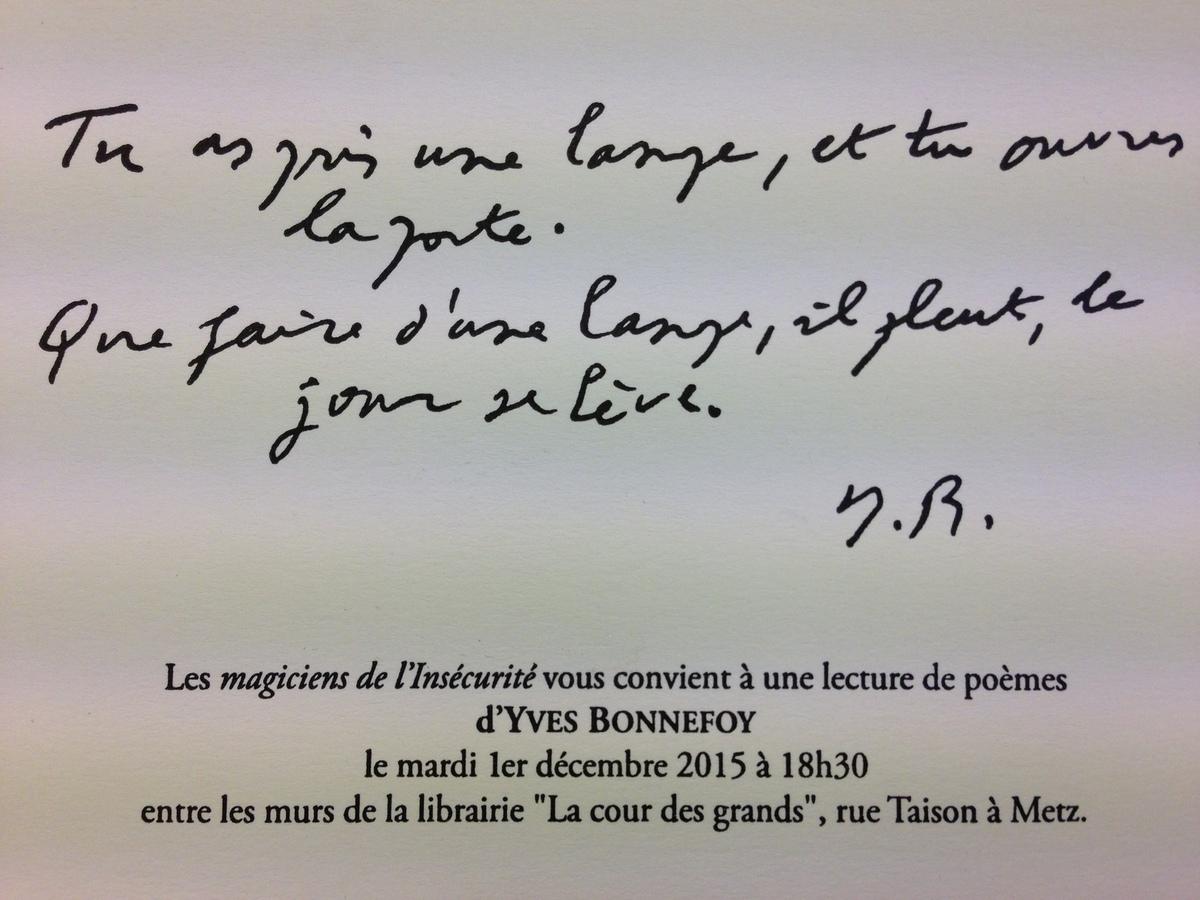 Tu as pris une lampe, et tu ouvres
la porte.
Que faire d'une lampe, il pleut, le
jour se lève.
Y.B.
Les magiciens de l'Insécurité vous convient à une lecture de poèmes
d'YVES BONNEFOY
le mardi 1er décembre 2015 à 18h30
entre les murs de la librairie "La cour des grands", rue Taison à Metz.